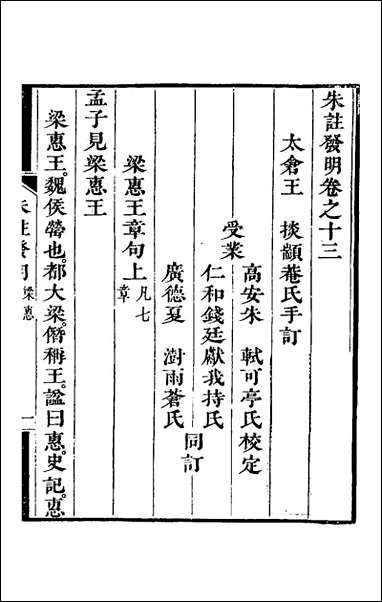 朱註發明卷之十三
太倉王　掞顓菴氏手訂
高安朱　軾可亭氏校定
受業
仁和錢廷獻我持氏
同訂
廣德夏　澍雨蒼氏
梁惠王章句上凡七章
孟子見梁惠王
梁惠王。魏侯罃也。都大梁。僭稱王。諡曰惠。史記。惠
朱註發明　梁惠　一